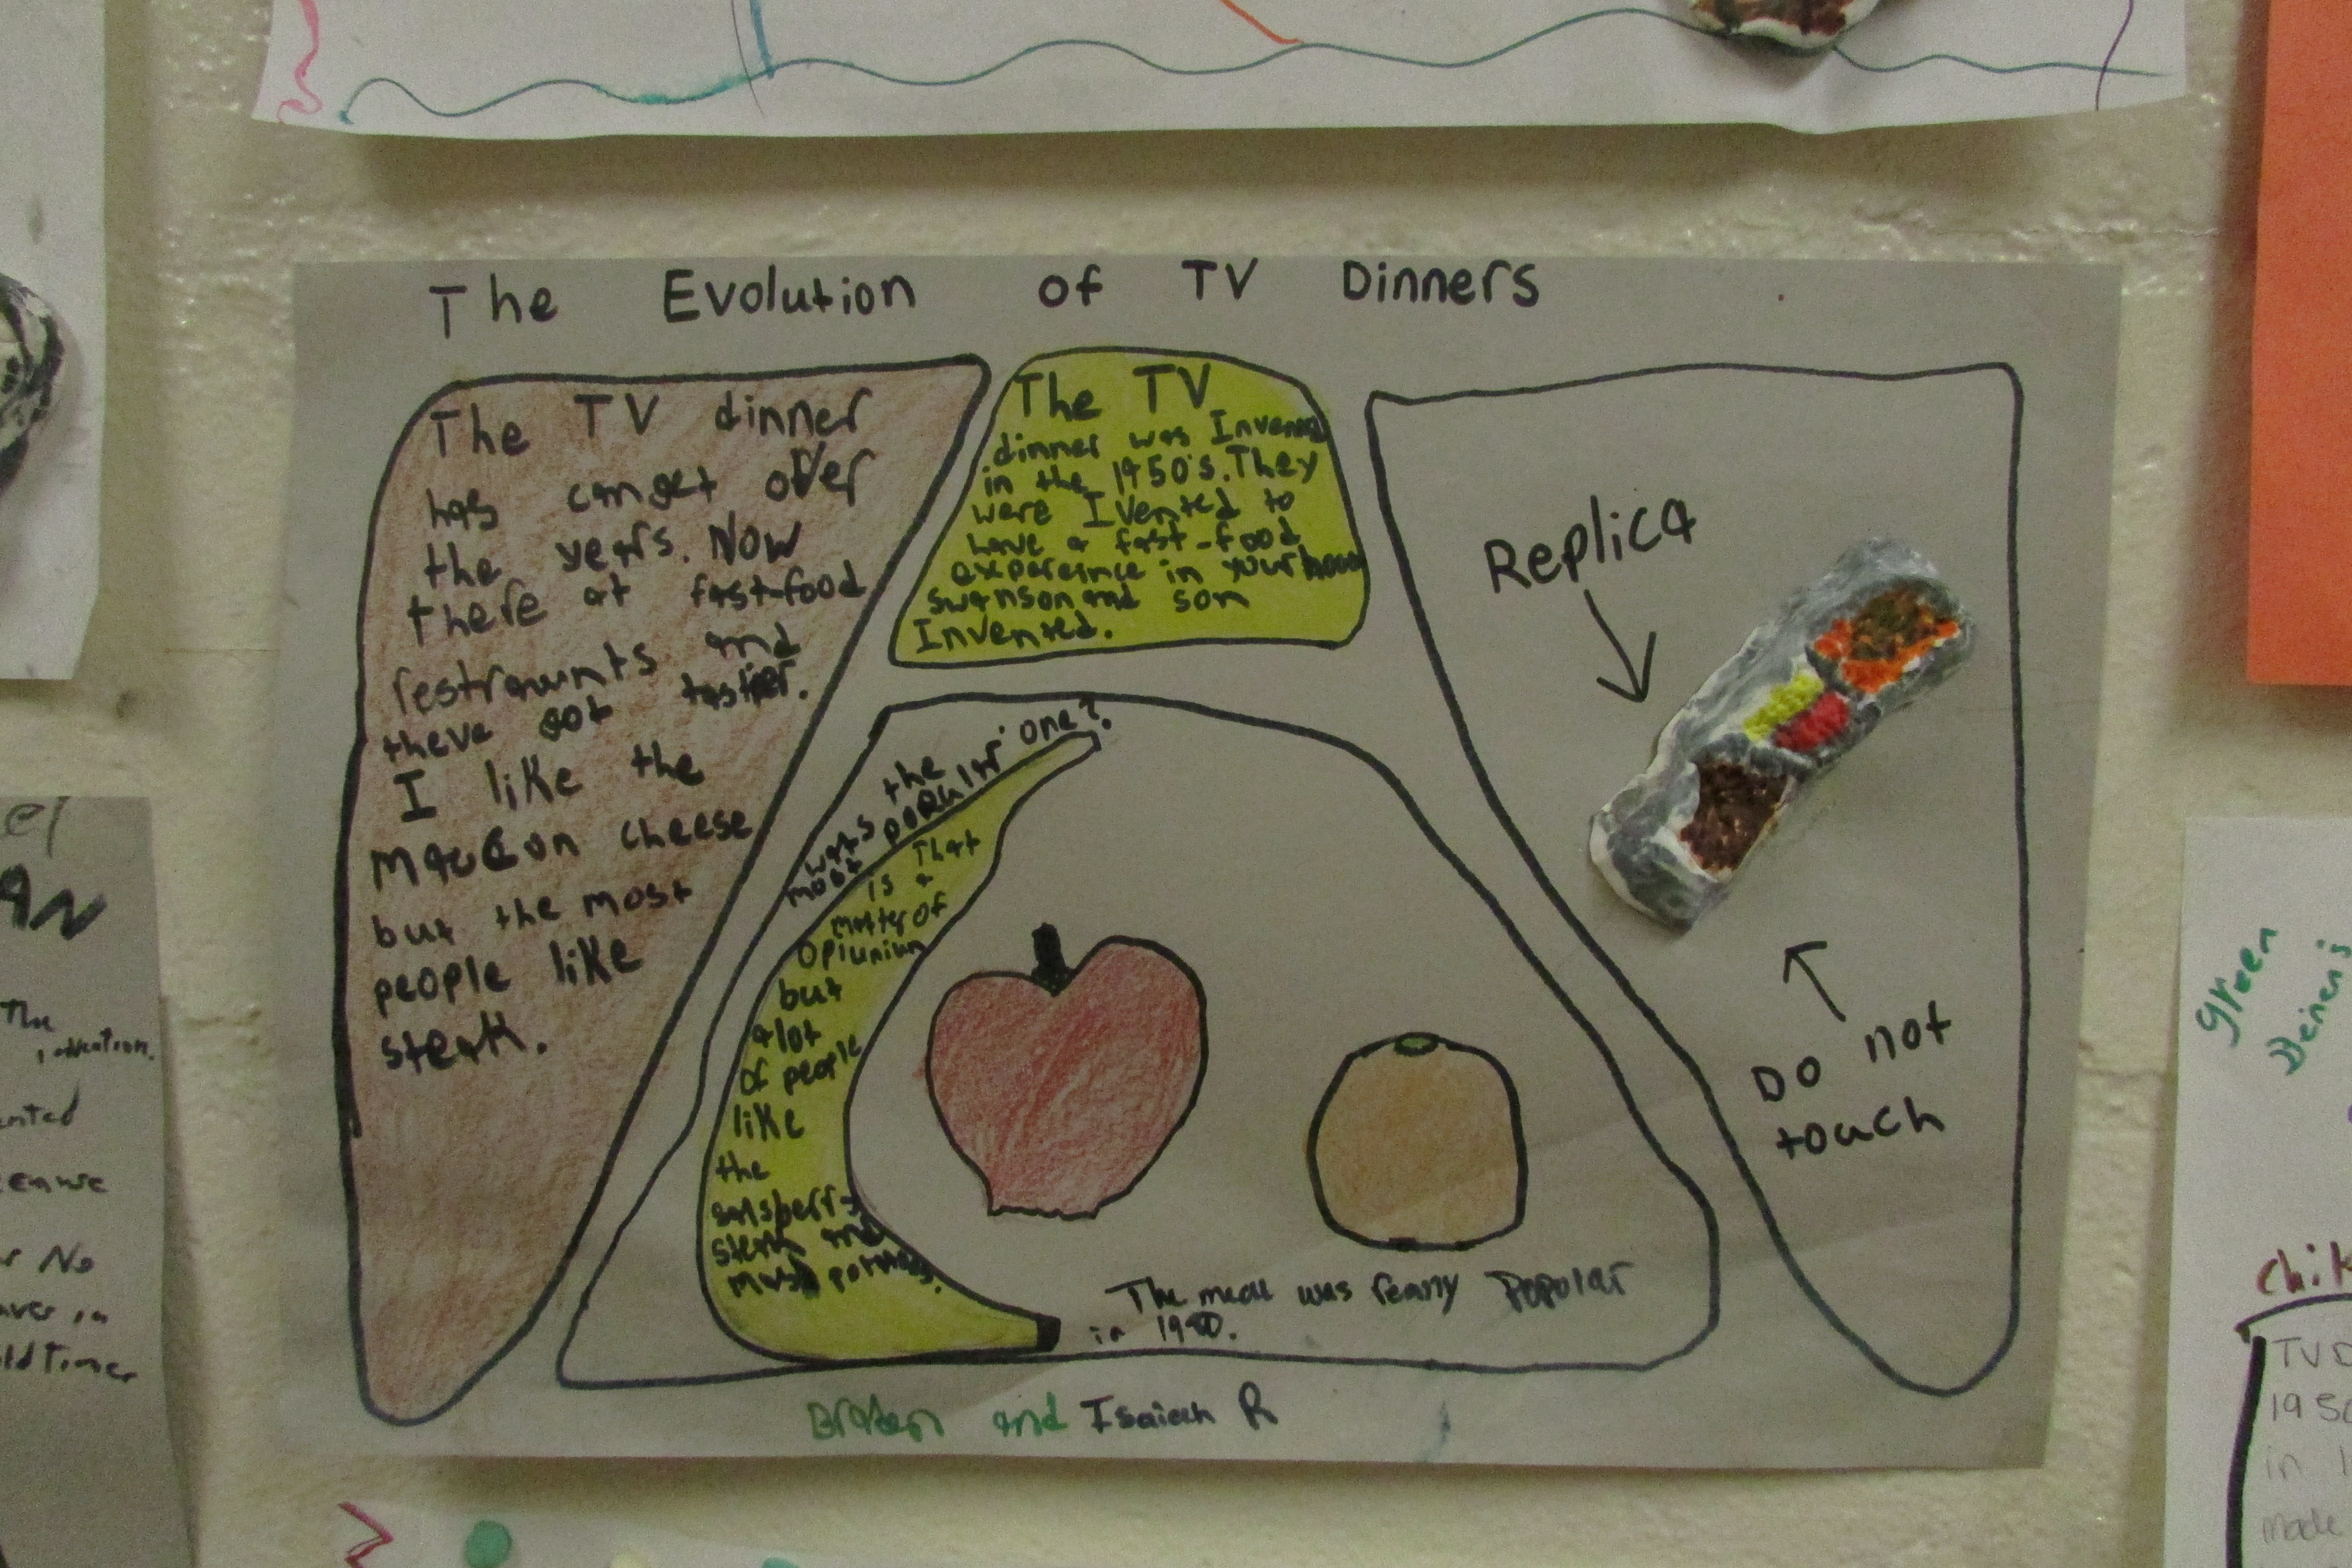 The Evolution of TV Dinners
The TV dinner
has canget over
the years. Now
there at fast-food
restraunts and
theve got tastier.
I like the
macucon cheese
but the most
people like
steak.
The TV
dinner was Invened
in the 1950's. They
were Ivented to
have a fast-food
experesince in your
swanson and son
Invented.
Replica
Do not
touch
was the
most populir one?
That
is a
matter of
Opiunion
but
alot
of people
like
the
salsberry
steak and
mash potatoes.
The meal was really Popolar
in
and Isaiah R
green
The
ented
No
in
Chik
TV D
195
in 1
made